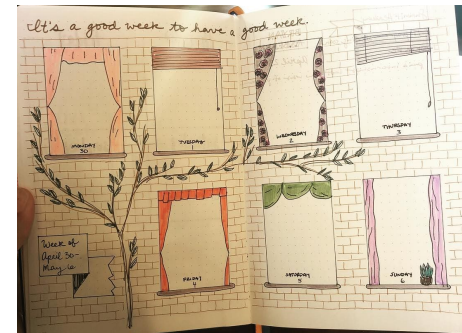 It's a good week to have a good week.
MONDAY
30
TUESDAY
WEDNESDAY
2
THURSDAY
3
Week of
April 30-
May 6
FRIDAY
4
SATURDAY
5
SUNDAY
6